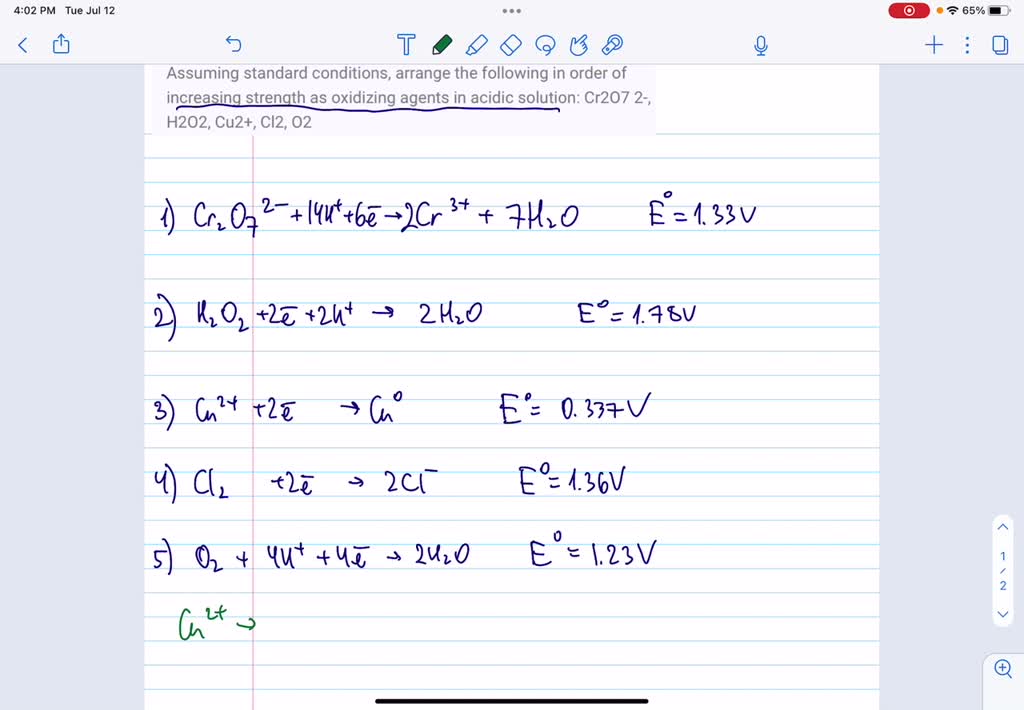 4:02 PM Tue Jul 12
65%
Assuming standard conditions, arrange the following in order of
increasing strength as oxidizing agents in acidic solution: Cr2O7 2-,
H2O2, Cu2+, Cl2, O2
1) Cr₂O₇²⁻ + 14H⁺ + 6ē → 2Cr³⁺ + 7H₂O E° = 1.33V
2) H₂O₂ + 2ē + 2H⁺ → 2H₂O E° = 1.78V
3) Cu²⁺ + 2ē → Cu⁰ E° = 0.337V
4) Cl₂ + 2ē → 2Cl⁻ E° = 1.36V
5) O₂ + 4H⁺ + 4ē → 2H₂O E° = 1.23V
Cu²⁺ →
1
/
2